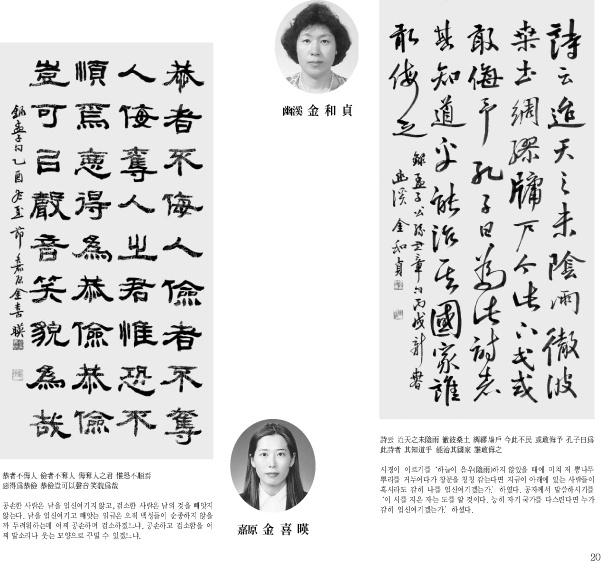 恭者不侮人儉者不奪
人侮奪人之君惟恐不
順焉惡得爲恭儉恭儉
豈可㠯聲音笑貌爲哉
錄孟子句 乙酉冬至節 嘉原 金喜暎
恭者不侮人 儉者不奪人 侮奪人之君 惟恐不順焉
惡得爲恭儉 恭儉豈可以聲音笑貌爲哉
공손한 사람은 남을 업신여기지 않고, 검소한 사람은 남의 것을 빼앗지
않는다. 남을 업신여기고 빼앗는 임금은 오직 백성들이 순종하지 않을
까 두려워하는데 어찌 공손하며 검소하겠느냐. 공손하고 검소함을 어
찌 말소리나 웃는 모양으로 꾸밀 수 있겠느냐.
幽溪 金和貞
嘉原 金喜暎
詩云迨天之未陰雨徹彼
桑土綢繆牖戶今此下民或
敢侮予孔子曰爲此詩者
其知道乎能治其國家誰
敢侮之
錄孟子公孫丑章句 丙戌新春
幽溪 金和貞
詩云 迨天之未陰雨 徹彼桑土 綢繆牖戶 今此下民 或敢侮予 孔子曰爲
此詩者 其知道乎 能治其國家 誰敢侮之
시경이 이르기를 '하늘이 음우(陰雨)하지 않았을 때에 미쳐 저 뽕나무
뿌리를 거두어다가 창문을 칭칭 감는다면 지금이 아래에 있는 사람들이
혹시라도 감히 나를 업신여기겠는가.' 하였다. 공자께서 말씀하시기를
'이 시를 지은 자는 도를 알 것이다. 능히 자기 국가를 다스린다면 누가
감히 업신여기겠는가.' 하셨다.
20